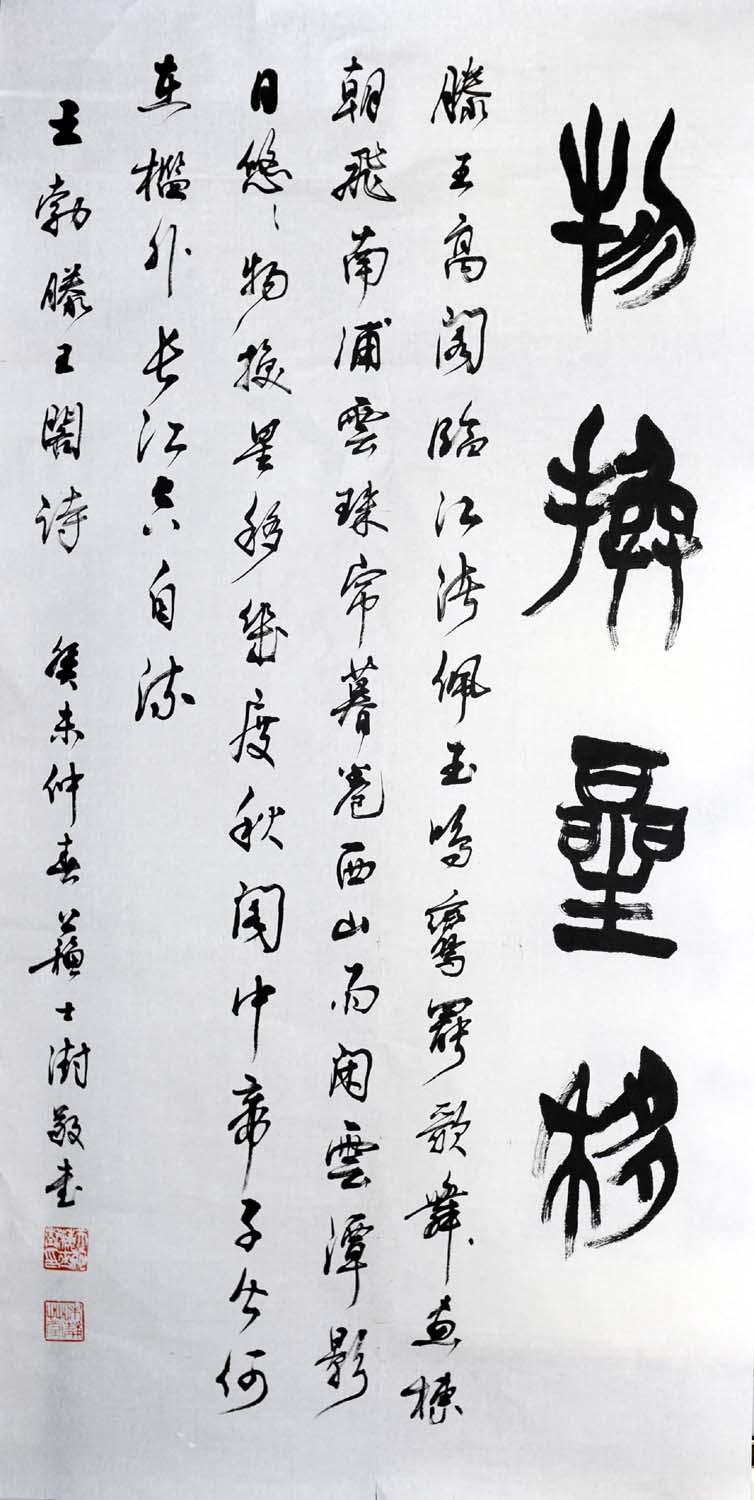 物換星移
滕王高阁臨江渚佩玉鳴鸞罷歌舞画棟
朝飛南浦雲珠帘暮卷西山雨闲雲潭影
日悠〻物换星移幾度秋阁中帝子今何
在檻外长江空自流
王勃滕王閣诗 癸未仲春蘇士澍敬书